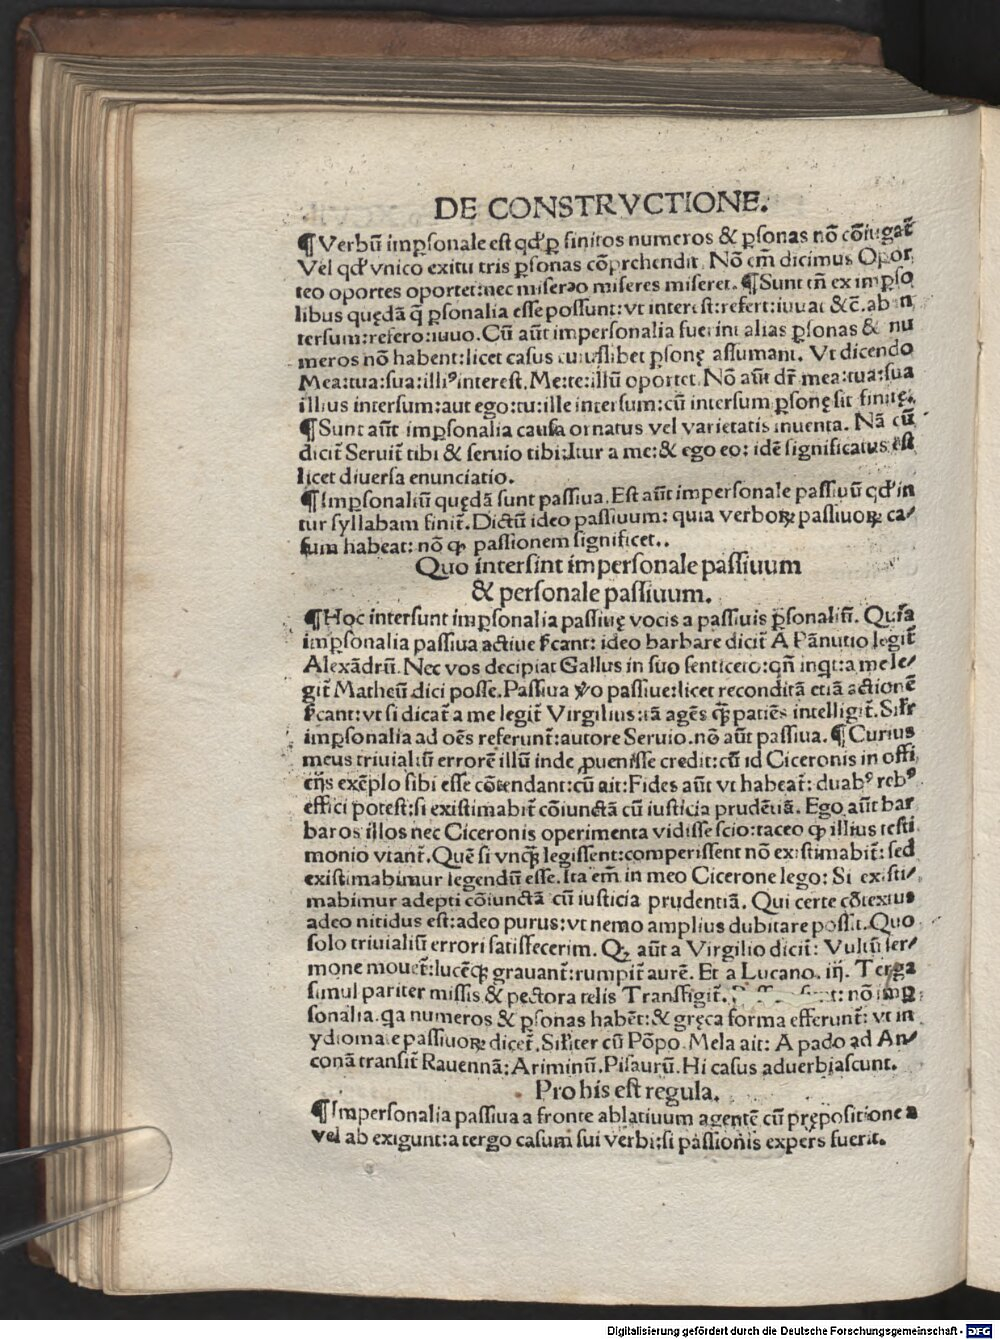 DE CONSTRVCTIONE.
¶Verbū imꝑsonale est qđ ꝑ finitos numeros & ꝑsonas nō cōiugat̄
Vel qđ vnico exitu tris ꝑsonas cōprehendit. Nō em̄ dicimus Opor
teo oportes oportet: nec misereo miseres miseret. ¶Sunt tn̄ ex imꝑso
libus quędā q̄ ꝑsonalia esse possunt: vt interest: refert: iuuat &c̄. ab in
tersum: refero: iuuo. Cū aūt impersonalia fuerint alias ꝑsonas & nu
meros nō habent: licet casus cuiuslibet ꝑsonę assumant. Vt dicendo
Mea: tua: sua: illiꝰ interest. Me: te: illū oportet. Nō aūt dr̄ mea: tua: sua
illius intersum: aut ego: tu: ille intersum: cū intersum ꝑsonę sit finitę.
¶Sunt aūt imꝑsonalia causa ornatus vel varietatis inuenta. Nā cū
dicit̄ Seruit̄ tibi & seruio tibi: Itur a me: & ego eo: idē significatus est
licet diuersa enunciatio.
¶Imꝑsonaliū quędā sunt passiua. Est aūt impersonale passiuū qđ in
tur syllabam finit̄. Dictū ideo passiuum: quia verboꝝ passiuoꝝ ca/
sum habeat: nō ꝙ passionem significet..
Quo intersint impersonale passiuum
& personale passiuum.
¶Hoc intersunt imꝑsonalia passiuę vocis a passiuis ꝑsonalit̄. Quīa
imꝑsonalia passiua actiue s̄cant: ideo barbare dicit̄ A Pānutio legit̄
Alexādrū. Nec vos decipiat Gallus in suo senticeto: qn̄ inqt: a me le/
git̄ Matheū dici posse. Passiua ꝟo passiue: licet reconditā etiā actionē
s̄cant: vt si dicat̄ a me legit̄ Virgilius: tā agēs ꝙ̄ patiēs intelligit̄. Sil̄r
imꝑsonalia ad oēs referunt̄: autore Seruio. nō aūt passiua. ¶Curius
meus triuialiū errorē illū inde ꝓuenisse credit: cū id Ciceronis in offi
cijs exēplo sibi esse cōtendant: cū ait: Fides aūt vt habeat̄: duabꝰ rebꝰ
effici potest: si existimabit̄ cōiunctā cū iusticia prudētiā. Ego aūt bar
baros illos nec Ciceronis operimenta vidisse scio: taceo ꝙ illius testi
monio vtant̄. Quē si vnꝙ̄ legissent: comperissent nō existimabit̄: sed
existimabimur legendū esse. Ita em̄ in meo Cicerone lego: Si existi/
mabimur adepti cōiunctā cū iusticia prudentiā. Qui certe cōtextus
adeo nitidus est: adeo purus: vt nemo amplius dubitare possit. Quo
solo triuialiū errori satisfecerim. Qꝫ aūt a Virgilio dicit̄: Vultū ser/
mone mouet̄: lucēqꝫ grauant̄: rumpit̄ aurē. Et a Lucano. iij. Terga
simul pariter missis & pectora telis Transfigit̄. nō imꝑ
sonalia. qa numeros & ꝑsonas habēt: & gręca forma efferunt̄: vt in
ydiomate passiuoꝝ dicet̄. Sil̄iter cū Pōpo. Mela ait: A pado ad An/
conā transit̄ Rauennā: Ariminū. Pisaurū. Hi casus aduerbiascunt.
Pro his est regula.
¶Impersonalia passiua a fronte ablatiuum agentē cū prępositione a
vel ab exigunt: a tergo casum sui verbi: si passionis expers fuerit.
Digitalisierung gefördert durch die Deutsche Forschungsgemeinschaft - DFG